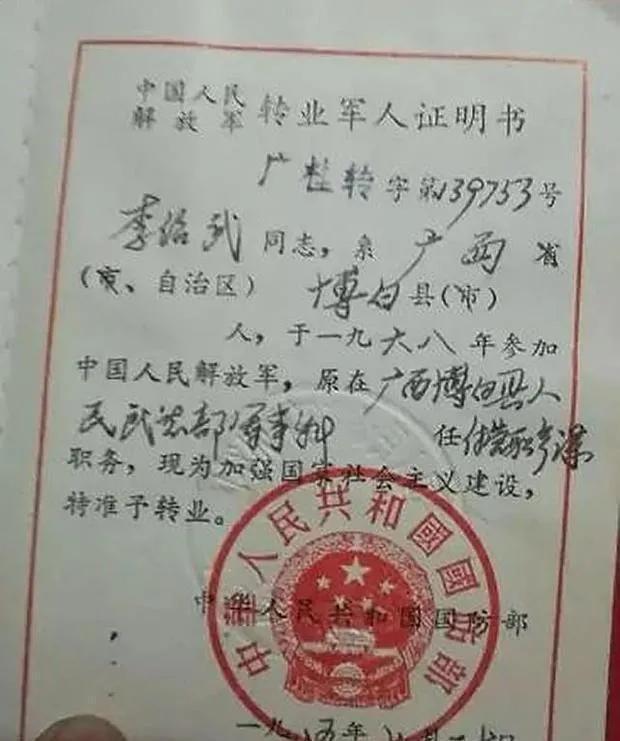 中国人民
解放军 转业军人证明书
广桂转字第139753号
李绍武同志，系广西省
（市、自治区）博白县（市）
人，于一九六八年参加
中国人民解放军，原在广西博白县人
民武装部军事科任 职参谋
职务，现为加强国家社会主义建设，
特准予转业。
中华人民共和国国防部
中华人民共和國國防部
一九八五年